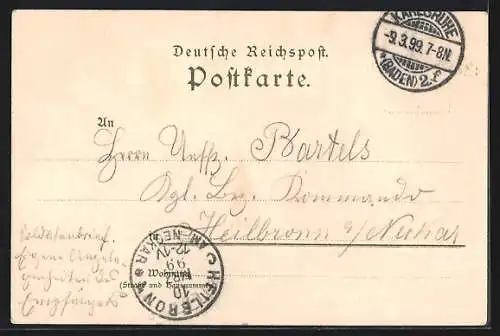 KARLSRUHE
-9.3.99.7-8N.
*(BADEN)2.
Deutsche Reichspost.
Postkarte.
An
Herrn Uffz. Bartels
Kgl. Bez. Kommando
Heilbronn a/Neckar
Soldatenbrief.
Eigene Angele-
genheiten des
Empfängers
HEILBRONN
AM NECKAR
10
MRZ
99
12-1V
Wohnung
(Straße und Hausnummer)